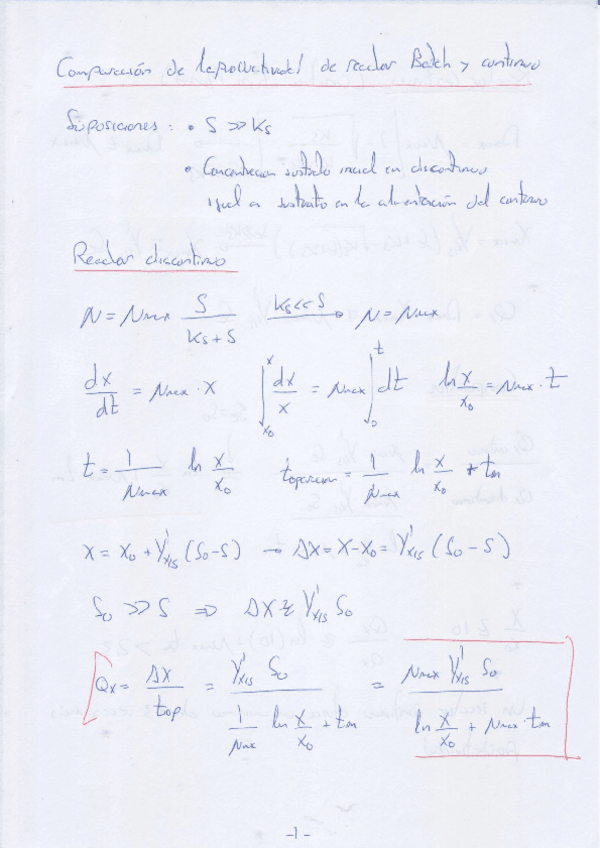 Comparación de la productividad de reactor Batch y continuo
Suposiciones : • S >> Ks
• Concentracion sustrato inicial en discontinuo
igual a sustrato en la alimentación del continuo
Reactor discontinuo
μ = μmax S / (Ks + S) Ks << S → μ = μmax
dx/dt = μmax · x ∫x0^x dx/x = μmax ∫0^t dt ln x/x0 = μmax · t
t = 1/μmax ln x/x0 toperacion = 1/μmax ln x/x0 + tm
X = X0 + Y'x/s (S0 - S) → ΔX = X - X0 = Y'x/s (S0 - S)
S0 >> S ⇒ ΔX ≈ Y'x/s S0
Qx = ΔX / top = Y'x/s S0 / (1/μmax ln x/x0 + tm) = μmax Y'x/s S0 / (ln x/x0 + μmax · tm)
-1-